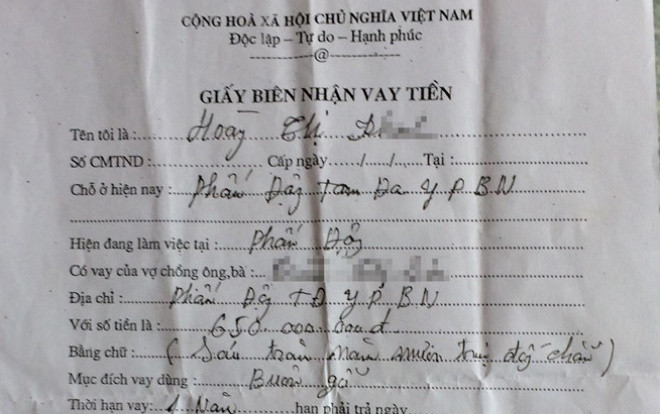 CỘNG HOÀ XÃ HỘI CHỦ NGHĨA VIỆT NAM
Độc lập – Tự do – Hạnh phúc
------------@------------
GIẤY BIÊN NHẬN VAY TIỀN
Tên tôi là : Hoàng Thị
Số CMTND : Cấp ngày ...../...../..... Tại :
Chỗ ở hiện nay : Phấn Động Tam Đa Y P B N
Hiện đang làm việc tại : Phấn Động
Có vay của vợ chồng ông,bà :
Địa chỉ : Phấn Động TĐ Y P. B N
Với số tiền là : 650 000 000đ
Bằng chữ : ( Sáu trăm năm mươi triệu đồng chẵn )
Mục đích vay dùng : Buôn gỗ
Thời hạn vay: 1 Năm hạn phải trả ngày